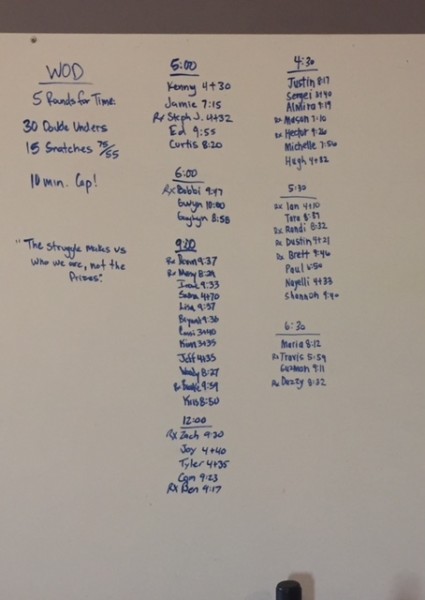 WOD
5 Rounds for Time:
30 Double Unders
15 Snatches 75/55
10 min. Cap!
"The struggle makes us
who we are, not the
Prizes."
5:00
Kenny 4+30
Jamie 7:15
Rx Steph J. 4+32
Ed 9:55
Curtis 8:20
6:00
Rx Bobbi 9:47
Gwyn 10:00
8:58
9:00
Rx 9:37
Rx Mary 8:29
9:33
4+70
Lisa 9:37
9:38
3+40
Kim 3+35
Jeff 4+35
Wendy 8:27
Rx 9:59
Kris 8:50
12:00
Rx Zach 9:30
Joy 4+40
Tyler 4+35
Cam 9:23
Rx Ben 9:17
4:30
Justin 8:17
Sergei 3+40
Almira 9:19
Rx Mason 7:10
Rx Hector 9:26
Michelle 7:56
Hugh 4+32
5:30
Rx Ian 4+10
Tara 8:37
Rx Randi 8:32
Rx Dustin 4+21
Rx Brett 9:46
Paul 6:50
Nayelli 4+33
Shannon 9:40
6:30
Maria 8:12
Rx Travis 5:59
Guzman 9:11
Rx Dezzy 8:32